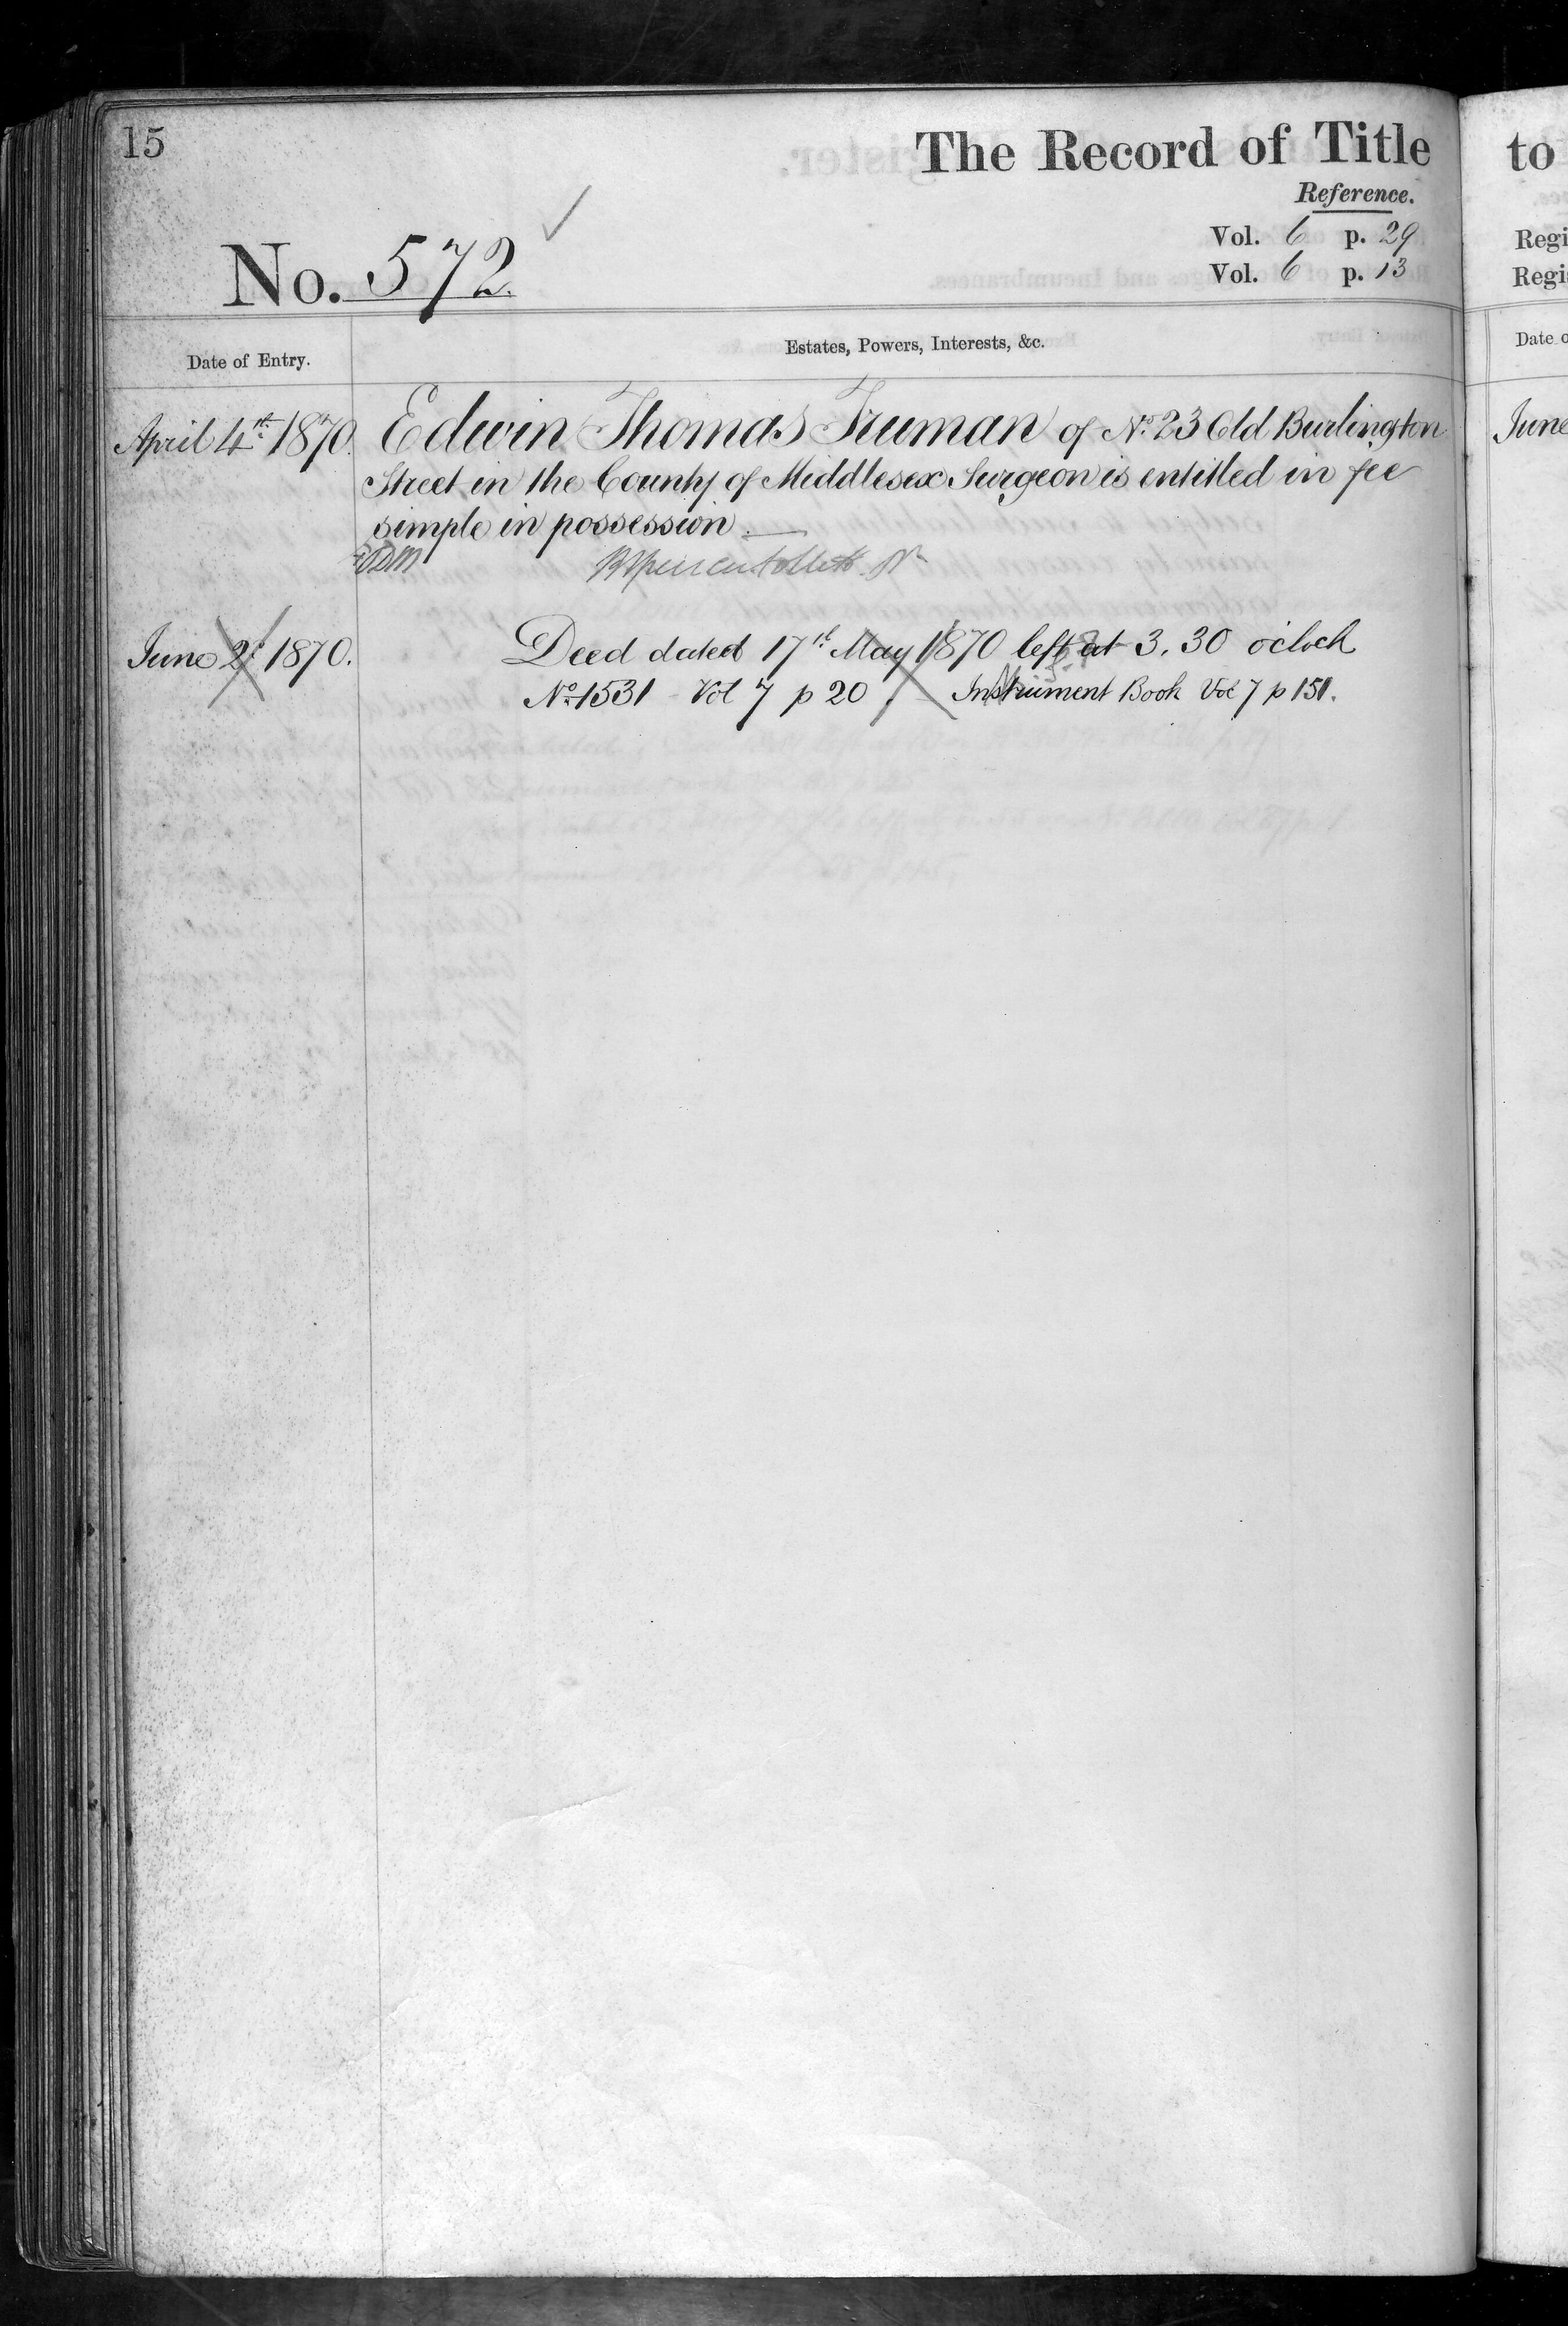 15
The Record of Title
to
Reference.
Vol. 6 p. 29
Regi
No. 572.
Vol. 6 p. 13
Regi
Date of Entry.
Estates, Powers, Interests, &c.
Date o
April 4th 1870.
Edwin Thomas Truman of No. 23 Old Burlington
June
Street in the County of Middlesex Surgeon is entitled in fee
simple in possession
June 2d 1870.
Deed dated 17th May 1870 left at 3.30 o'clock
No. 1531 Vol 7 p 20
Instrument Book Vol 7 p 151.